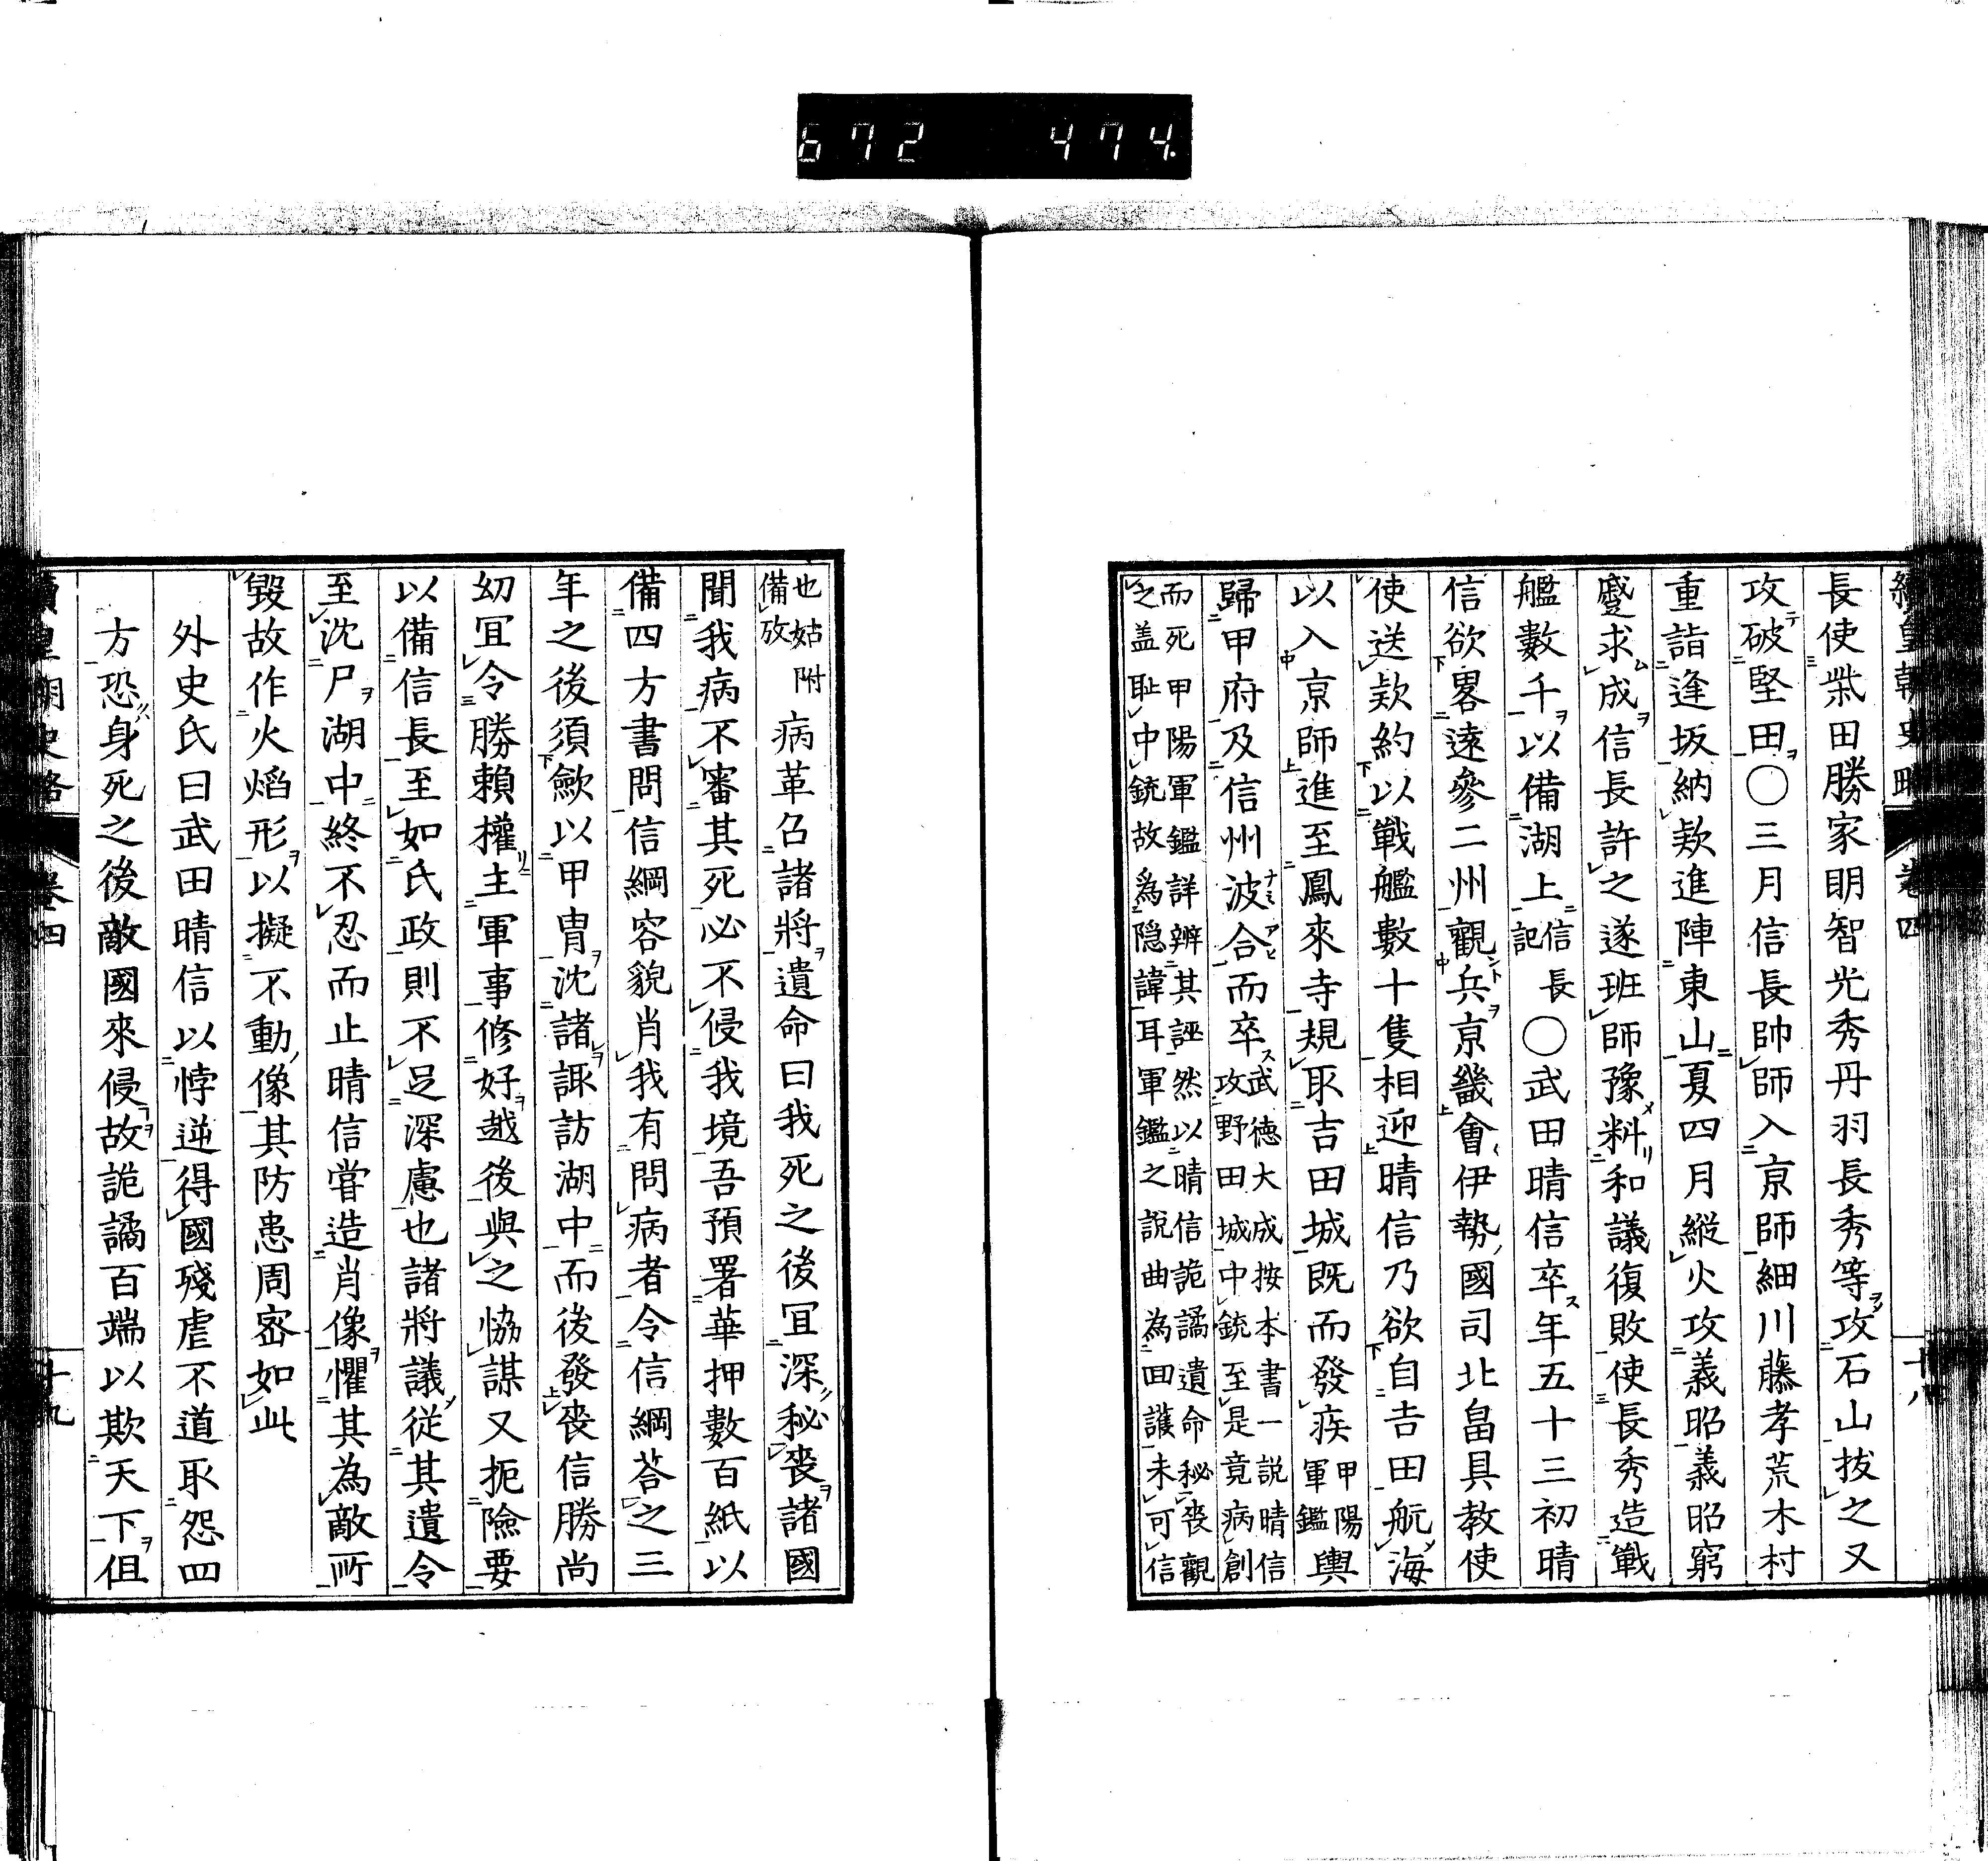 672 474.
續皇朝史略 卷四 十八
長使柴田勝家明智光秀丹羽長秀等攻石山拔之又
攻破堅田〇三月信長帥師入京師細川藤孝荒木村
重詣逢坂納欵進陣東山夏四月縱火攻義昭義昭窮
蹙求成信長許之遂班師豫料和議復敗使長秀造戰
艦數千以備湖上信長記〇武田晴信卒年五十三初晴
信欲畧遠參二州觀兵京畿會伊勢國司北畠具教使
使送欵約以戰艦數十隻相迎晴信乃欲自吉田航海
以入京師進至鳳來寺規取吉田城既而發疾甲陽軍鑑輿
歸甲府及信州波合而卒武徳大成按本書一説晴信攻野田城中銃至是竟病創
而死甲陽軍鑑詳辨其誣然以晴信詭譎遺命秘喪觀之盖耻中銃故爲隐諱耳軍鑑之説曲為回護未可信
也姑附備攷病革召諸將遺命曰我死之後宜深秘喪諸國
聞我病不審其死必不侵我境吾預署華押數百紙以
備四方書問信綱容貌肖我有問病者令信綱荅之三
年之後須歛以甲冑沈諸諏訪湖中而後發喪信勝尚
幼宜令勝賴權主軍事修好越後與之恊謀又扼險要
以備信長至如氏政則不足深慮也諸將議從其遺令
至沈尸湖中終不忍而止晴信嘗造肖像懼其為敵所
毀故作火熖形以擬不動像其防患周密如此
外史氏曰武田晴信以悖逆得國殘虐不道取怨四
方恐身死之後敵國來侵故詭譎百端以欺天下但
續皇朝史略 卷四 十九